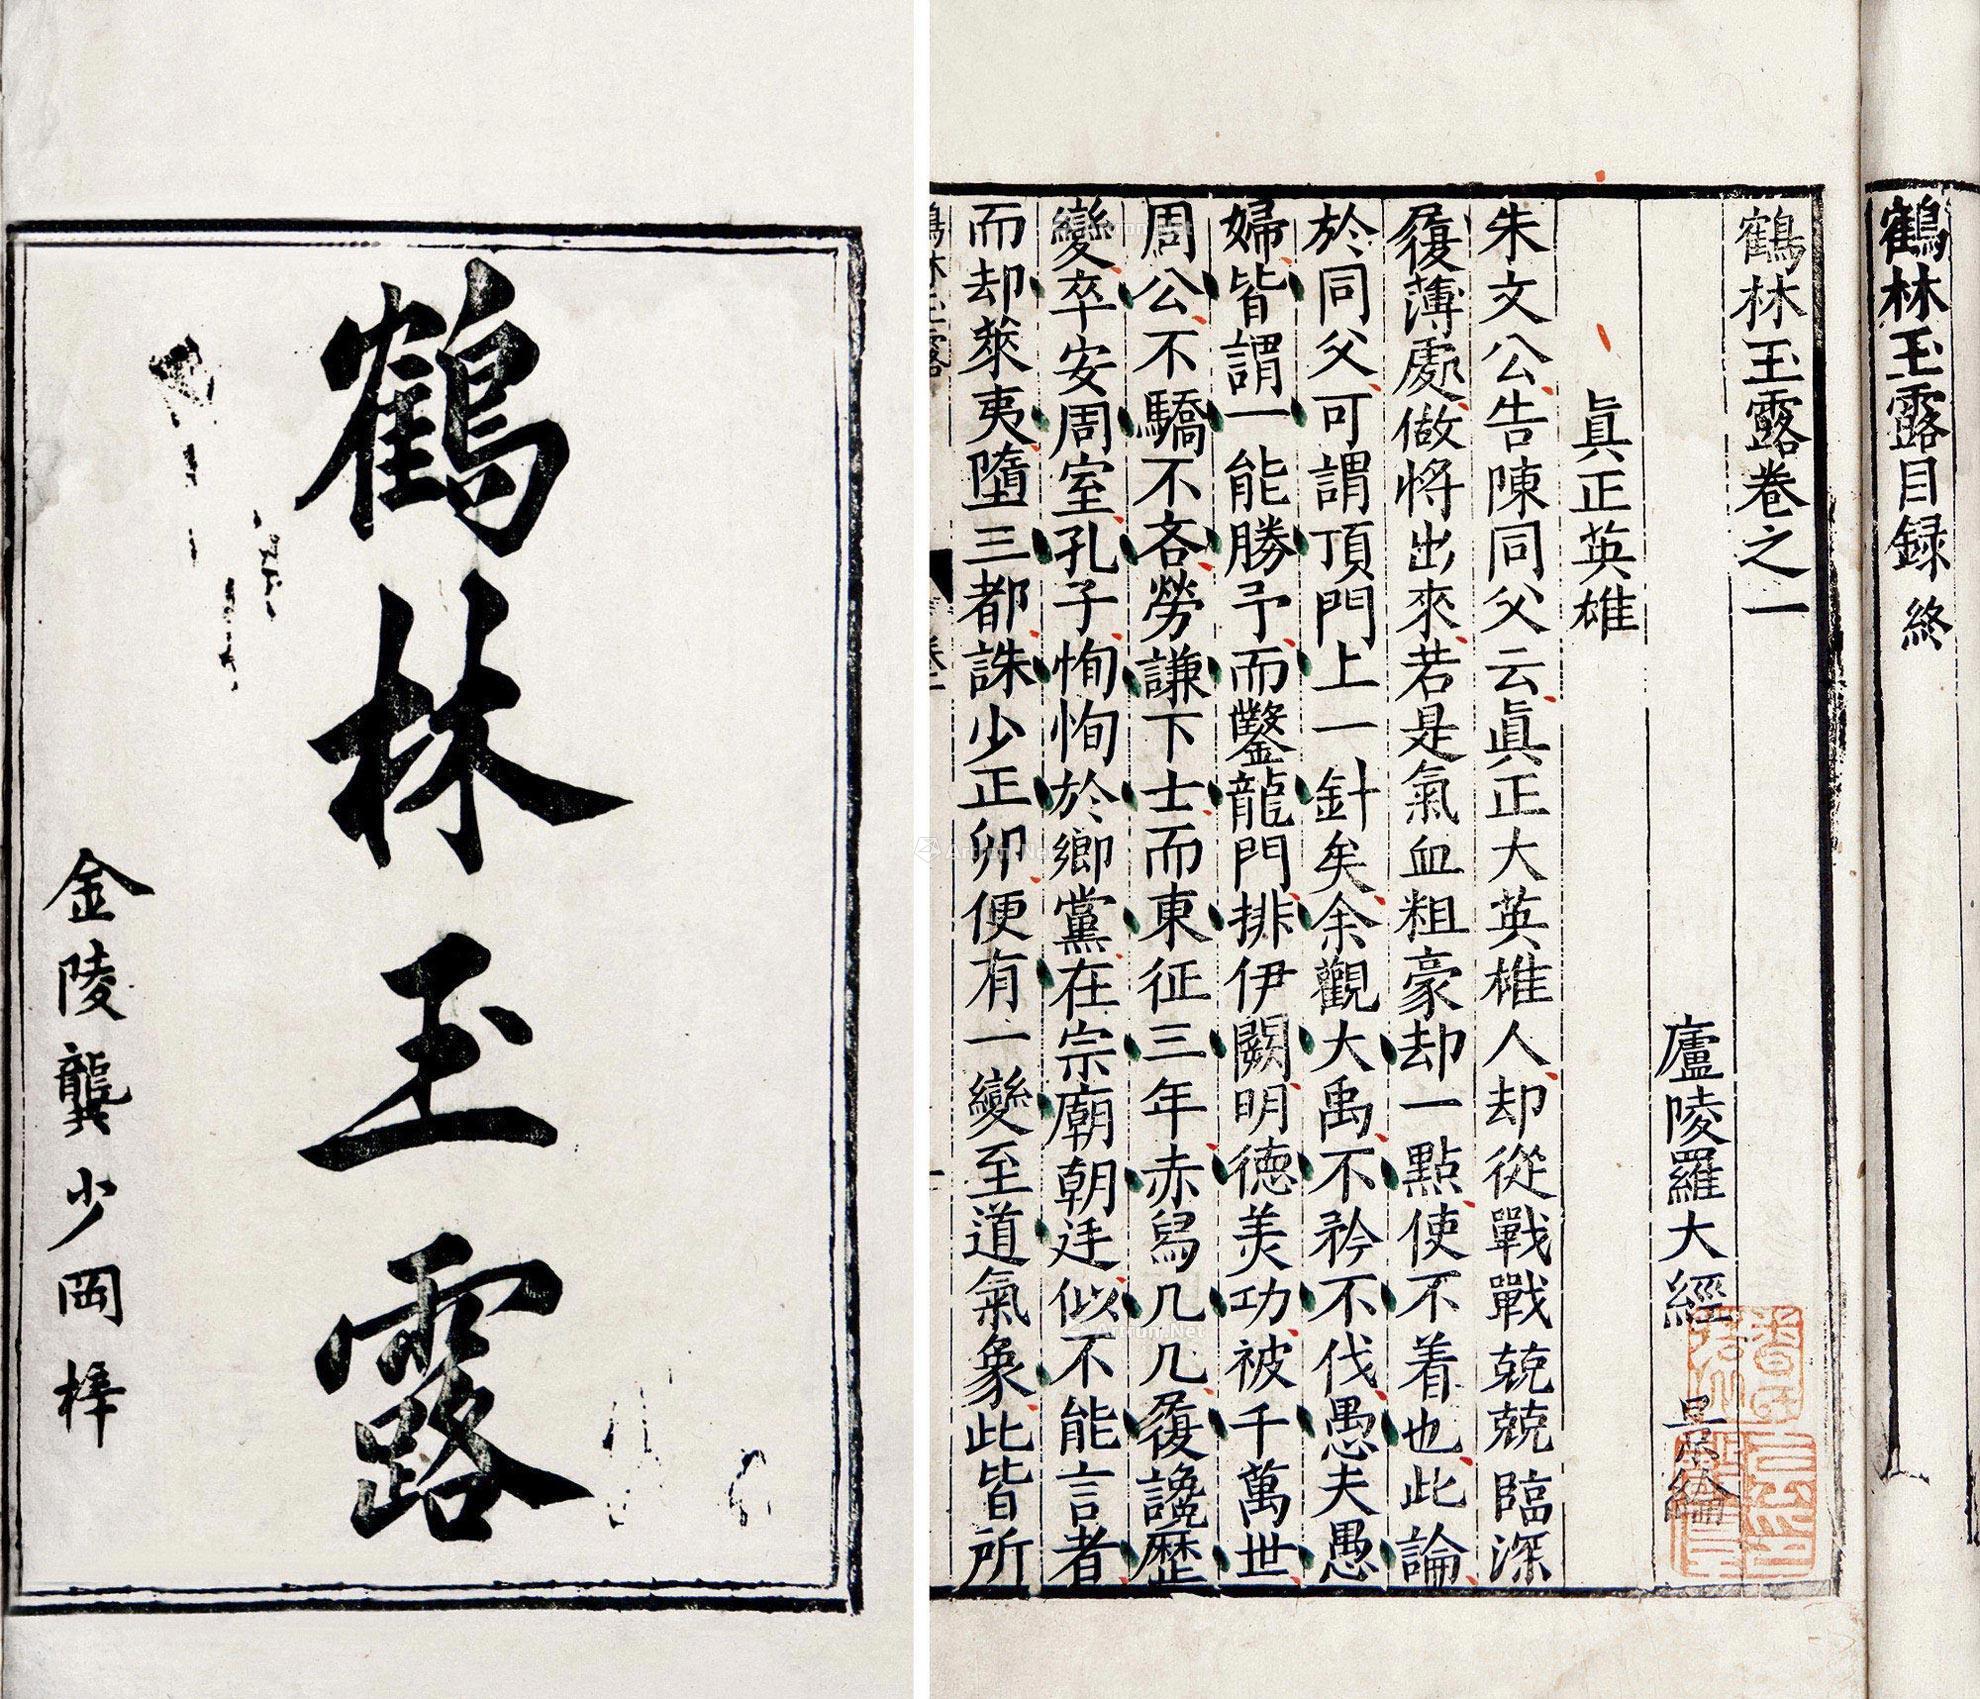 鶴林玉露
金陵龔少岡梓
鶴林玉露目録 終
鶴林玉露卷之一
廬陵羅大經
眞正英雄
朱文公告陳同父云眞正大英雄人却從戰戰兢兢臨深
履薄處做將出來若是氣血粗豪却一點使不着也此論
於同父可謂頂門上一針矣余觀大禹不矜不伐愚夫愚
婦皆謂一能勝予而鑿龍門排伊闕明德美功被千萬世
周公不驕不吝勞謙下士而東征三年赤舃几几履讒歷
變卒安周室孔子恂恂於鄉黨在宗廟朝廷似不能言者
而却萊夷墮三都誅少正卯便有一變至道氣象此皆所